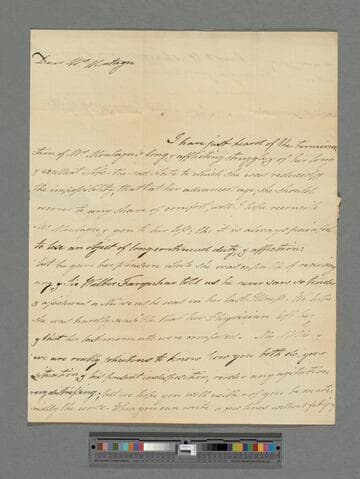 Dear Mrs. Montagu
I have just heard of the termina=
=tion of Mrs. Montagu's long & afflicting struggles of her long
& excellent life. the sad state to which she was reduced &
the impossibility, that at her advanced age, she should
recover to any share of comfort, will I hope reconcile
Mr. Montagu & you to her loss, tho' it is always painful
to lose an object of long continued duty & affection:
but he gave her pleasure while she was capable of receiving
any, & Sir Walter Farquhar told us he never saw so tender
& affectionate a Nurse as he was in her last Illness. We hope
she was hardly sensible that her Physician left her,
& that her last moments were composed.
we are really solicitous to know how you both do, your
situation & his present indisposition, render any agitation
very distressing; but we hope you will neither of you be mate=
=rially the worse. When you can write a few lines without fatigue